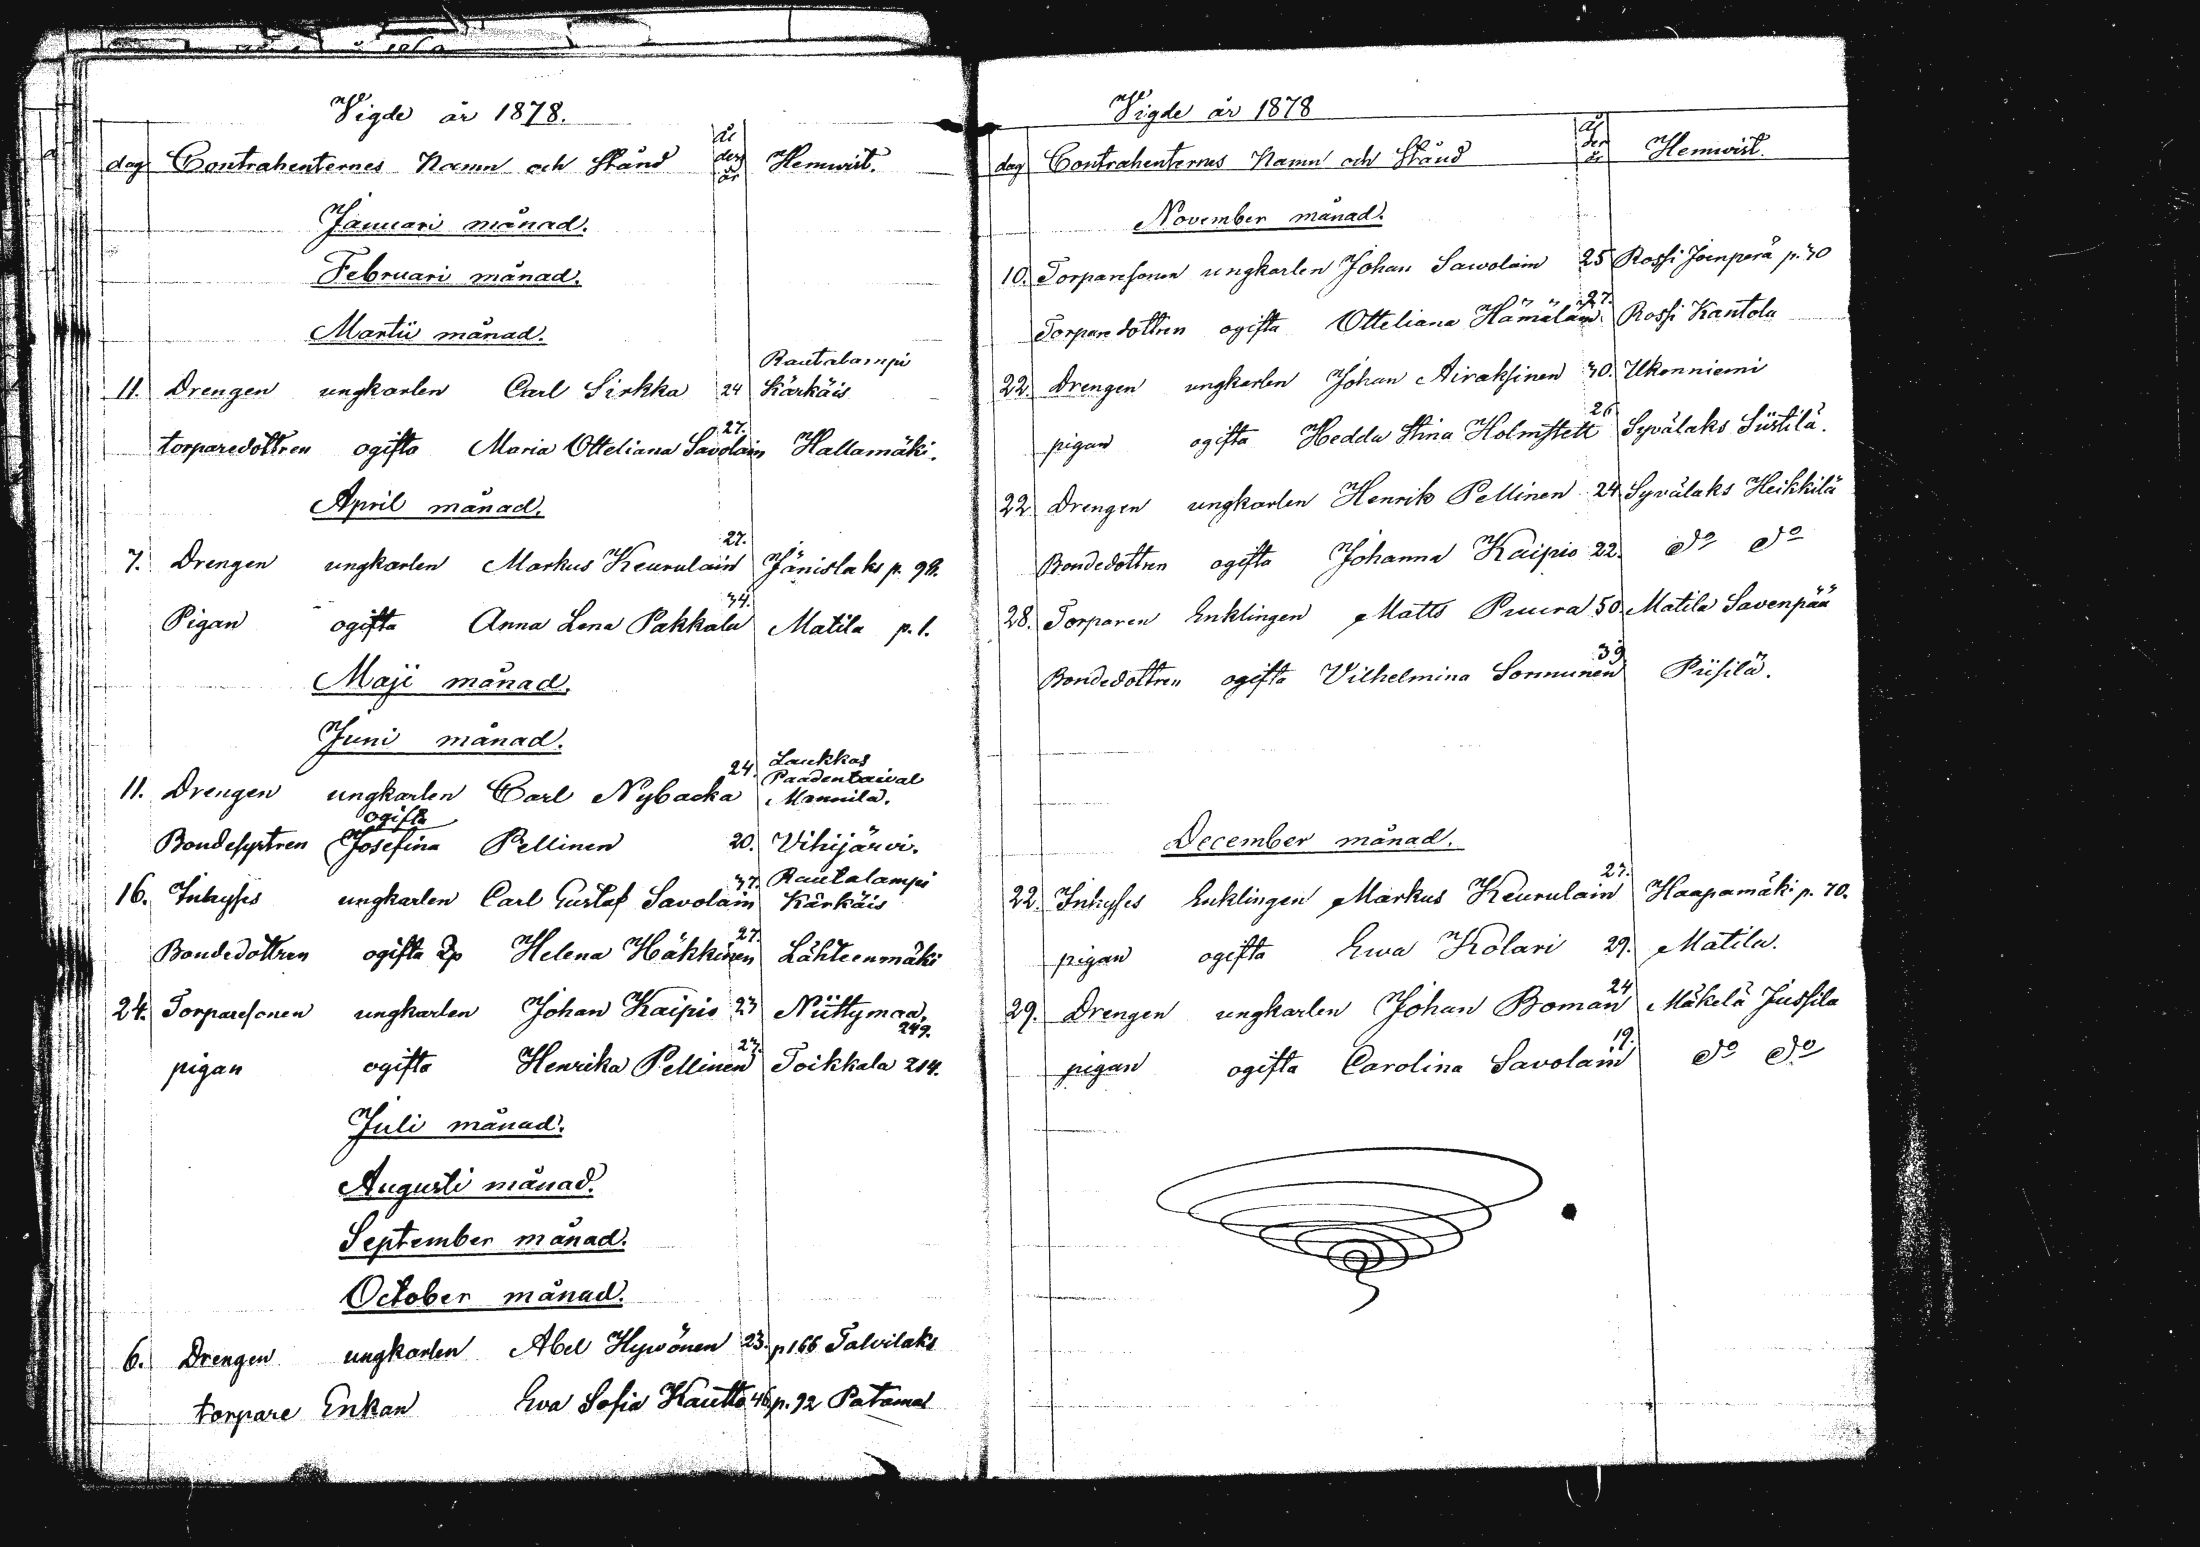 Vigde år 1878.
dag Contrahenternes Namn och Stånd ålder år Hemvist.
Januari månad.
Februari månad.
Martii månad.
Rautalampi
11. Drengen ungkarlen Carl Sirkka 24 Kärkäis
torparedottren ogifta Maria Otteliana Savolain 27. Hallamäki.
April månad.
7. Drengen ungkarlen Markus Keurulain 27. Jänislaks p. 98.
Pigan ogifta Anna Lena Pakkala 34. Matila p. 1.
Maji månad.
Juni månad.
Laukkas
Paadentaival
11. Drengen ungkarlen Carl Nybacka 24. Mannila.
ogifta
Bondesystren Josefina Pellinen 20. Vihijärvi.
Rautalampi
16. Inhyses ungkarlen Carl Gustaf Savolain 37. Kärkäis
Bondedottren ogifta Helena Häkkinen 27. Lähteenmäki
24. Torparesonen ungkarlen Johan Kaipio 23 Niittymaa, 249.
pigan ogifta Henrika Pellinen 27. Toikkala 214.
Juli månad.
Augusti månad.
September månad.
October månad.
6. Drengen ungkarlen Abel Hyvönen 23. p 166 Talvilaks
torpare Enkan Eva Sofia Kautto 46 p. 92 Patama
Vigde år 1878
dag Contrahenternes Namn och Stånd ålder år Hemvist.
November månad.
10. Torparesonen ungkarlen Johan Sawolain 25 Rossi Joenperä p. 70
Torparedottren ogifta Otteliana Hämälain 27. Rossi Kantola
22. Drengen ungkarlen Johan Airaksinen 30. Ukonniemi
pigan ogifta Hedda Stina Holmstett 26 Syvälaks Siistilä.
22 Drengen ungkarlen Henrik Pellinen 24 Syvälaks Heikkilä
Bondedottren ogifta Johanna Kaipio 22. do do
28. Torparen Enklingen Matts Puura 50 Matila Savenpää
Bondedottren ogifta Vilhelmina Sonnunen 39 Piisilä.
December månad.
22. Inhyses Enklingen Markus Keurulain 27. Haapamäki p. 70.
pigan ogifta Ewa Kolari 29. Matila.
29. Drengen ungkarlen Johan Boman 24 Mäkelä Jussila
pigan ogifta Carolina Savolain 19. do do